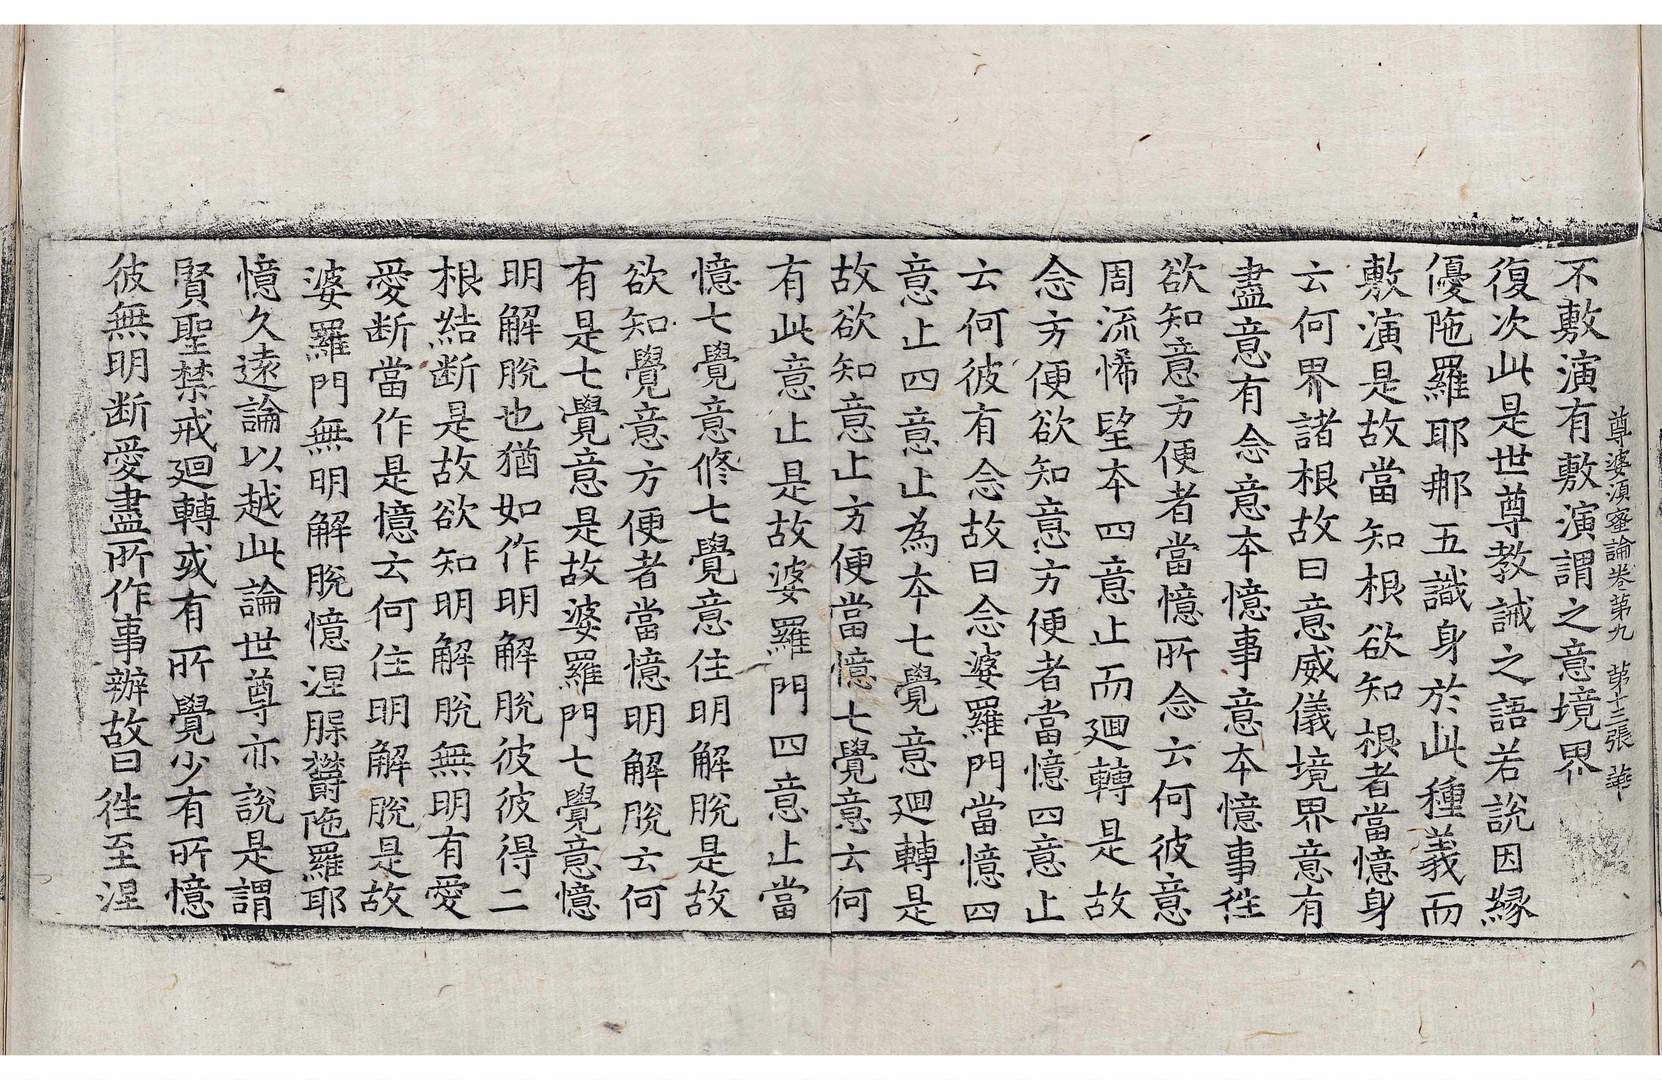 尊婆湏蜜論卷苐九 苐十三張 華
不敷演有敷演謂之意境界
復次此是世尊教誡之語若說因緣
優陁羅耶那五識身於此種義而
敷演是故當知根欲知根者當憶身
云何界諸根故曰意威儀境界意有
盡意有念意本憶事意本憶事徃
欲知意方便者當憶所念云何彼意
周流悕望本四意止而迴轉是故
念方便欲知意方便者當憶四意止
云何彼有念故曰念婆羅門當憶四
意止四意止為本七覺意迴轉是
故欲知意止方便當憶七覺意云何
有此意止是故婆羅門四意止當
憶七覺意修七覺意住明解脫是故
欲知覺意方便者當憶明解脫云何
有是七覺意是故婆羅門七覺意憶
明解脫也猶如作明解脫彼彼得二
根結断是故欲知明解脫無明有愛
愛断當作是憶云何住明解脫是故
婆羅門無明解脫憶涅䐗欝陁羅耶
憶久遠論以越此論世尊亦說是謂
賢聖禁戒迴轉或有所覺少有所憶
彼無明断愛盡所作事辦故曰徃至涅